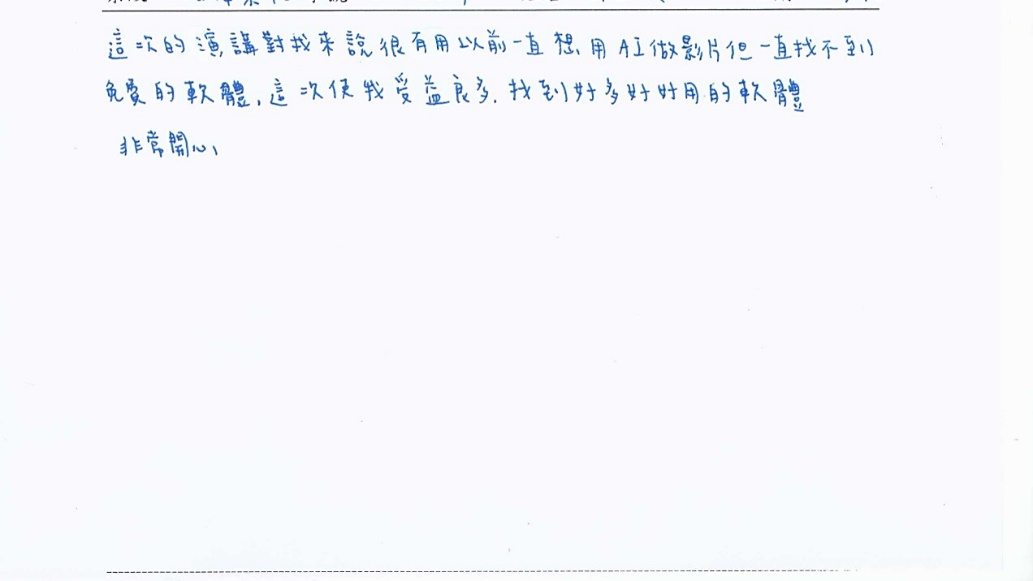 這次的演講對我來說很有用以前一直想用AI做影片但一直找不到
免費的軟體,這次使我受益良多.找到好多好好用的軟體
非常開心